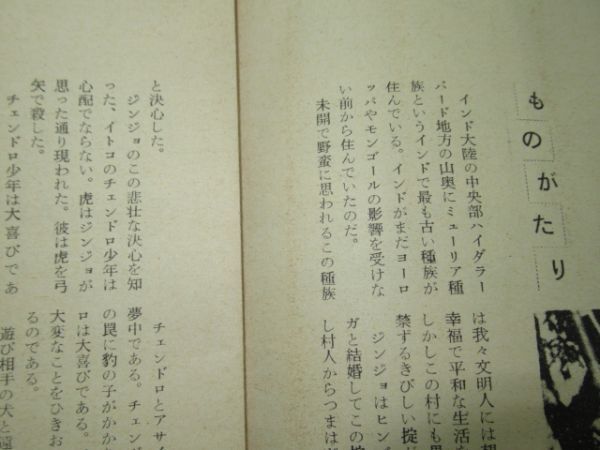 ものがたり
インド大陸の中央部ハイダラー
バード地方の山奥にミューリア種
族というインドで最も古い種族が
住んでいる。インドがまだヨーロ
ッパやモンゴールの影響を受けな
い前から住んでいたのだ。
未開で野蛮に思われるこの種族
は我々文明人には想
幸福で平和な生活を
しかしこの村にも男
禁ずるきびしい掟が
ジンジョはヒンガ
ガと結婚してこの掟
し村人からつまはじ
と決心した。
ジンジョのこの悲壮な決心を知
った、イトコのチェンドロ少年は
心配でならない。虎はジンジョが
思った通り現われた。彼は虎を弓
矢で殺した。
チェンドロ少年は大喜びであ
チェンドロとアサイ
夢中である。チェンド
の罠に豹の子がかか
ロは大喜びである。
大変なことをひきお
るのである。
遊び相手の犬と遠